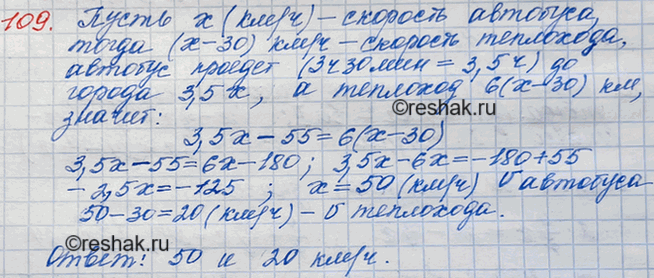 109. Пусть x (км/ч) – скорость автобуса,
тогда (x-30) км/ч – скорость теплохода,
автобус проедет (3ч30мин = 3,5ч) до
города 3,5x, а теплоход 6(x-30) км,
значит:
3,5x - 55 = 6(x-30)
3,5x - 55 = 6x - 180; 3,5x - 6x = -180 + 55
-2,5x = -125 ; x = 50 (км/ч) υ автобуса
50 - 30 = 20 (км/ч) – υ теплохода.
©reshak.ru
Ответ: 50 и 20 км/ч.
©reshak.ru